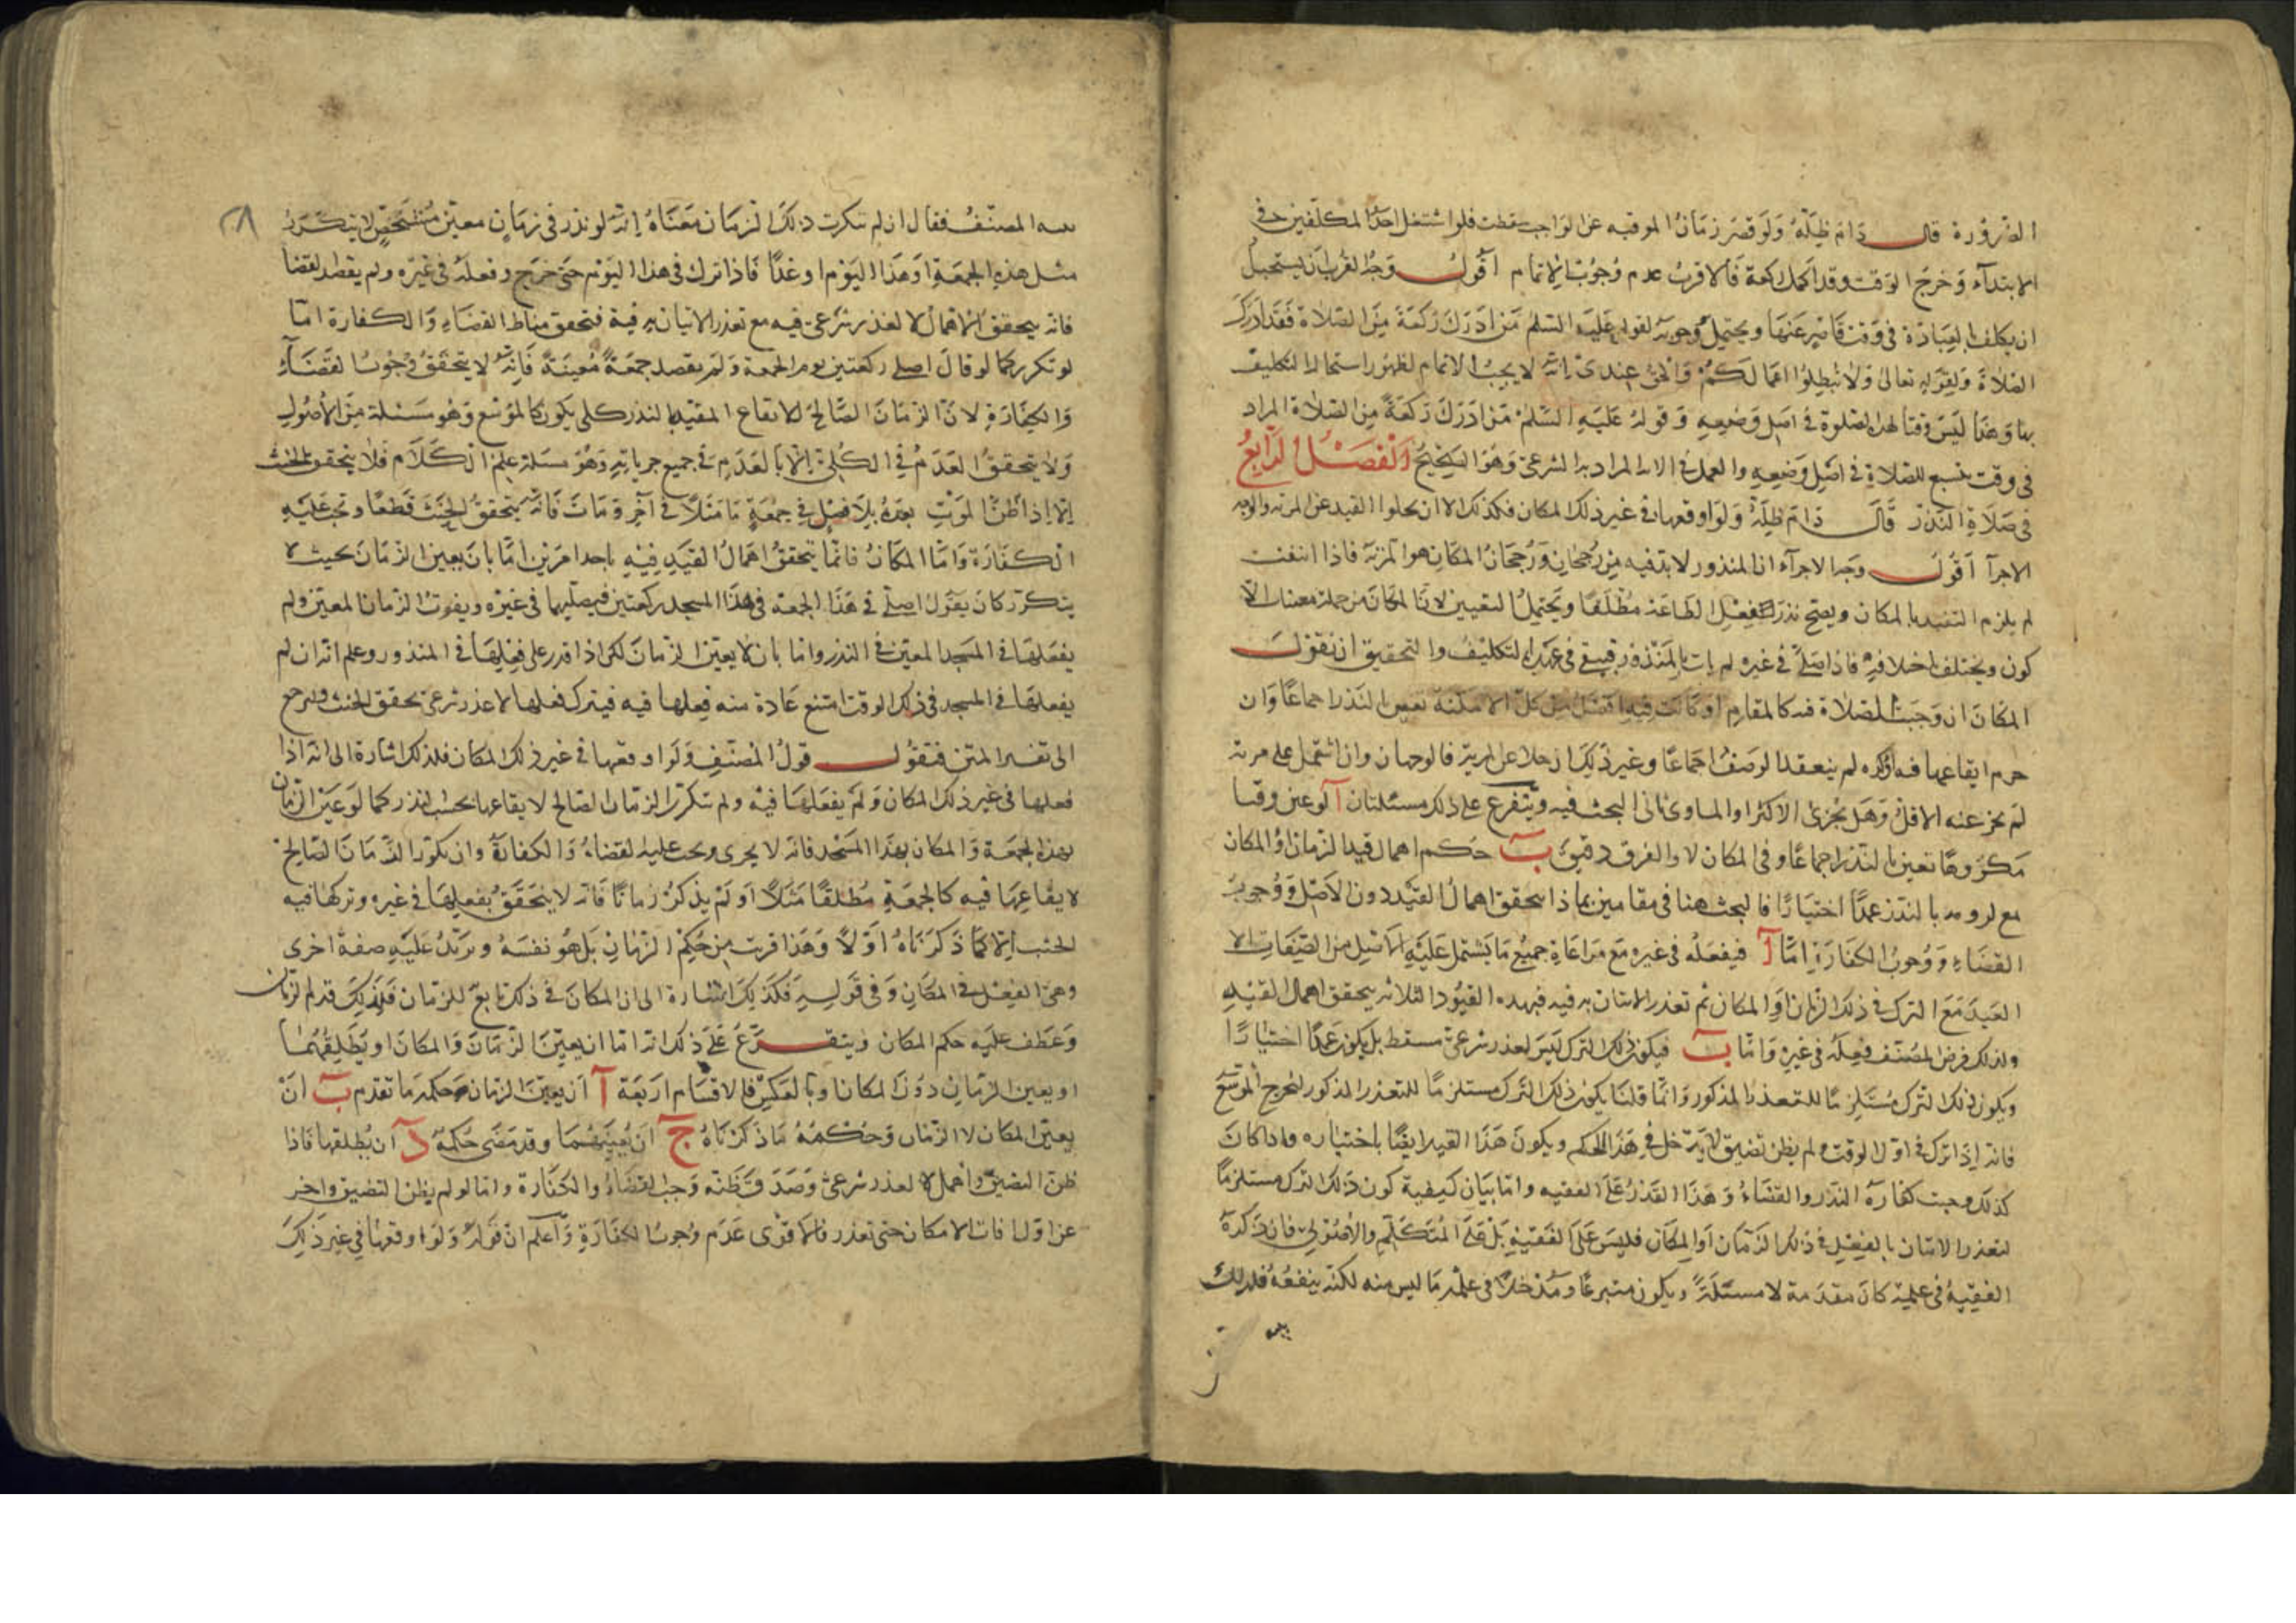 الضرورة قال دام ظله ولو قصر زمان الموقتة عن الواجب سقطت فلو اشتغل احد المكلفين في
الابتداء وخرج الوقت وقد اكمل ركعة فالاقرب عدم وجوب الاتمام اقول وجه القرب انه يستحيل
ان يكلف بالعبادة في وقت قاصر عنها ويحتمل وجوبه لقوله عليه السلم من ادرك ركعة من الصلاة فقد ادرك
الصلاة ولقوله تعالى ولا تبطلوا اعمالكم والحق عندي انه لا يجب الاتمام لظهور استحالة التكليف
بها وهذا ليس وقتا لهذه الصلوة في اصل وضعه وقوله عليه السلم من ادرك ركعة من الصلاة المراد
في وقت يتسع للصلاة في اصل وضعه والعمل في الاية المراد به الشرعي وهو الصحيح الفصل الرابع
في صلاة النذر قال دام ظله ولو اوقعها في غير ذلك المكان فكذلك الا ان يخلو القيد عن المزية والوجه
الاجزآ اقول وجه الاجزاء ان المنذور لا بد فيه من رجحان ورجحان المكان هو المزية فاذا انتفت
لم يلزم التقييد بالمكان ويصح نذر فعل الطاعة مطلقا ويحتمل التعيين لان المكان من جملة مشخصات
كون ويختلف باختلافه فاذا صلى في غيره لم يات بالمنذور فيبقى في عهدة التكليف والتحقيق ان نقول
المكان ان وجبت الصلاة فيه كالمقام او كانت فيه افضل من كل الامكنة تعين بالنذر اجماعا وان
حرم ايقاعها فيه او كره لم ينعقد الوصف اجماعا وغير ذلك ان خلا عن المزية فالوجهان وان اشتمل على مزية
لم يجز عنه الاقل وهل يجزئ الاكثر او المساوي ياتي البحث فيه ويتفرع على ذلك مسئلتان آ لو عين وقتا
مكروها تعين بالنذر اجماعا وفي المكان لا والفرق دقيق ب حكم اهمال قيد الزمان او المكان
مع لزومه بالنذر عمدا اختيارا فالبحث هنا في مقامين بماذا يتحقق اهمال القيد دون الاصل ووجوب
القضاء ووجوب الكفارة اما آ فيفعله في غيره مع مراعاة جميع ما يشتمل عليه الاصل من الصفات الا
القيد مع الترك في ذلك الزمان او المكان ثم تعذر الاتيان به فيه فبهذه القيود الثلاثه يتحقق اهمال القيد
ولذلك فرض المصنف فعله في غيره واما ب فيكون ذلك الترك ليس لعذر شرعي مسقط بل يكون عمدا اختيارا
ويكون ذلك الترك مستلزما للتعذر المذكور وانما قلنا يكون ذلك الترك مستلزما للتعذر المذكور ليخرج الموسع
فانه اذا ترك في اول الوقت ولم يظن تضيق لا يدخل في هذا الحكم ويكون هذا القيد ايضا باختياره واذا كان
كذلك وجبت كفارة النذر والقضاء وهذا القدر على الفقيه واما بيان كيفية كون ذلك الترك مستلزما
لتعذر الاتيان بالفعل في ذلك الزمان او المكان فليس على الفقيه بل على المتكلم والاصولي فان ذكره
الفقيه في علمه كان مقدمة لا مسئلة ويكون متبرعا ومدخلا في علمه ما ليس منه لكنه ينفعه فلذلك
المصنف فقال ان لم يتكرر ذلك الزمان معناه انه لو نذر في زمان معين مشخص لا يتكرر
مثل هذه الجمعة او هذا اليوم او غدا فاذا ترك في هذا اليوم حتى خرج وفعله في غيره ولم يقصد القضا
فانه يتحقق الاهمال لا لعذر شرعي فيه مع تعذر الاتيان به فيه فتحقق مناط القضاء والكفارة اما
لو تكرر كما لو قال اصلي ركعتين يوم الجمعة ولم يقصد جمعة معينة فانه لا يتحقق وجوب القضاء
والكفارة لان الزمان الصالح لايقاع المقيد بالنذر كلي يكون كالموسع وهو مسئلة من الاصول
ولا يتحقق العدم في الكلي الا بالعدم في جميع جزياته وهو مسئلة علم الكلام فلا يتحقق الحنث
الا اذا ظن الموت بعده بلا فصل في جمعة ما مثلا في آخر ومات فانه يتحقق الحنث قطعا وتجب عليه
الكفارة واما المكان فانما يتحقق اهمال القيد فيه باحد امرين اما بان يعين الزمان بحيث لا
يتكرر كان يقول اصلي في هذا الجمعة في هذا المسجد ركعتين فيصليها في غيره ويفوت الزمان المعين ولم
يفعلها في المسجد المعين في النذر واما بان لا يعين الزمان لكن اذا قدر على فعلها في المنذور وعلم انه ان لم
يفعلها في المسجد في ذلك الوقت امتنع عادة منه فعلها فيه فيترك فعلها لا لعذر شرعي تحقق الحنث ولنرجع
الى تفسير المتن فنقول قول المصنف ولو اوقعها في غير ذلك المكان فلذلك اشارة الى انه اذا
فعلها في غير ذلك المكان ولم يفعلها فيه ولم يتكرر الزمان الصالح لايقاعها بحسب النذر كما لو عين الزمان
بهذه الجمعة والمكان بهذا المسجد فانه لا يجزى ويجب عليه القضاء والكفارة وان تكرر الزمان الصالح
لايقاعها فيه كالجمعة مطلقا مثلا او لم يذكر زمانا فانه لا يتحقق بفعلها في غيره وتركها فيه
الحنث الا كما ذكرناه اولا وهذا قريب من حكم الزمان بل هو نفسه ويزيد عليه صفة اخرى
وهي الفعل في المكان وفي قوله فكذلك اشارة الى ان المكان في ذلك تابع للزمان فلذلك قدم الزمان
وعطف عليه حكم المكان ويتفرع على ذلك انه اما ان يعين الزمان والمكان او يطلقهما
او يعين الزمان دون المكان او بالعكس فالاقسام اربعة آ ان يعين الزمان وحكمه ما تقدم ب ان
يعين المكان لا الزمان وحكمه ما ذكرناه ج ان يعينهما وقد مضى حكمه د ان يطلقها فاذا
ظن التضيق واهمل لا لعذر شرعي وصدق ظنه وجب القضاء والكفارة واما لو لم يظن التضيق واخر
عن اول اوقات الامكان حتى تعذر فالاقوى عدم وجوب الكفارة واعلم ان قوله ولو اوقعها في غير ذلك